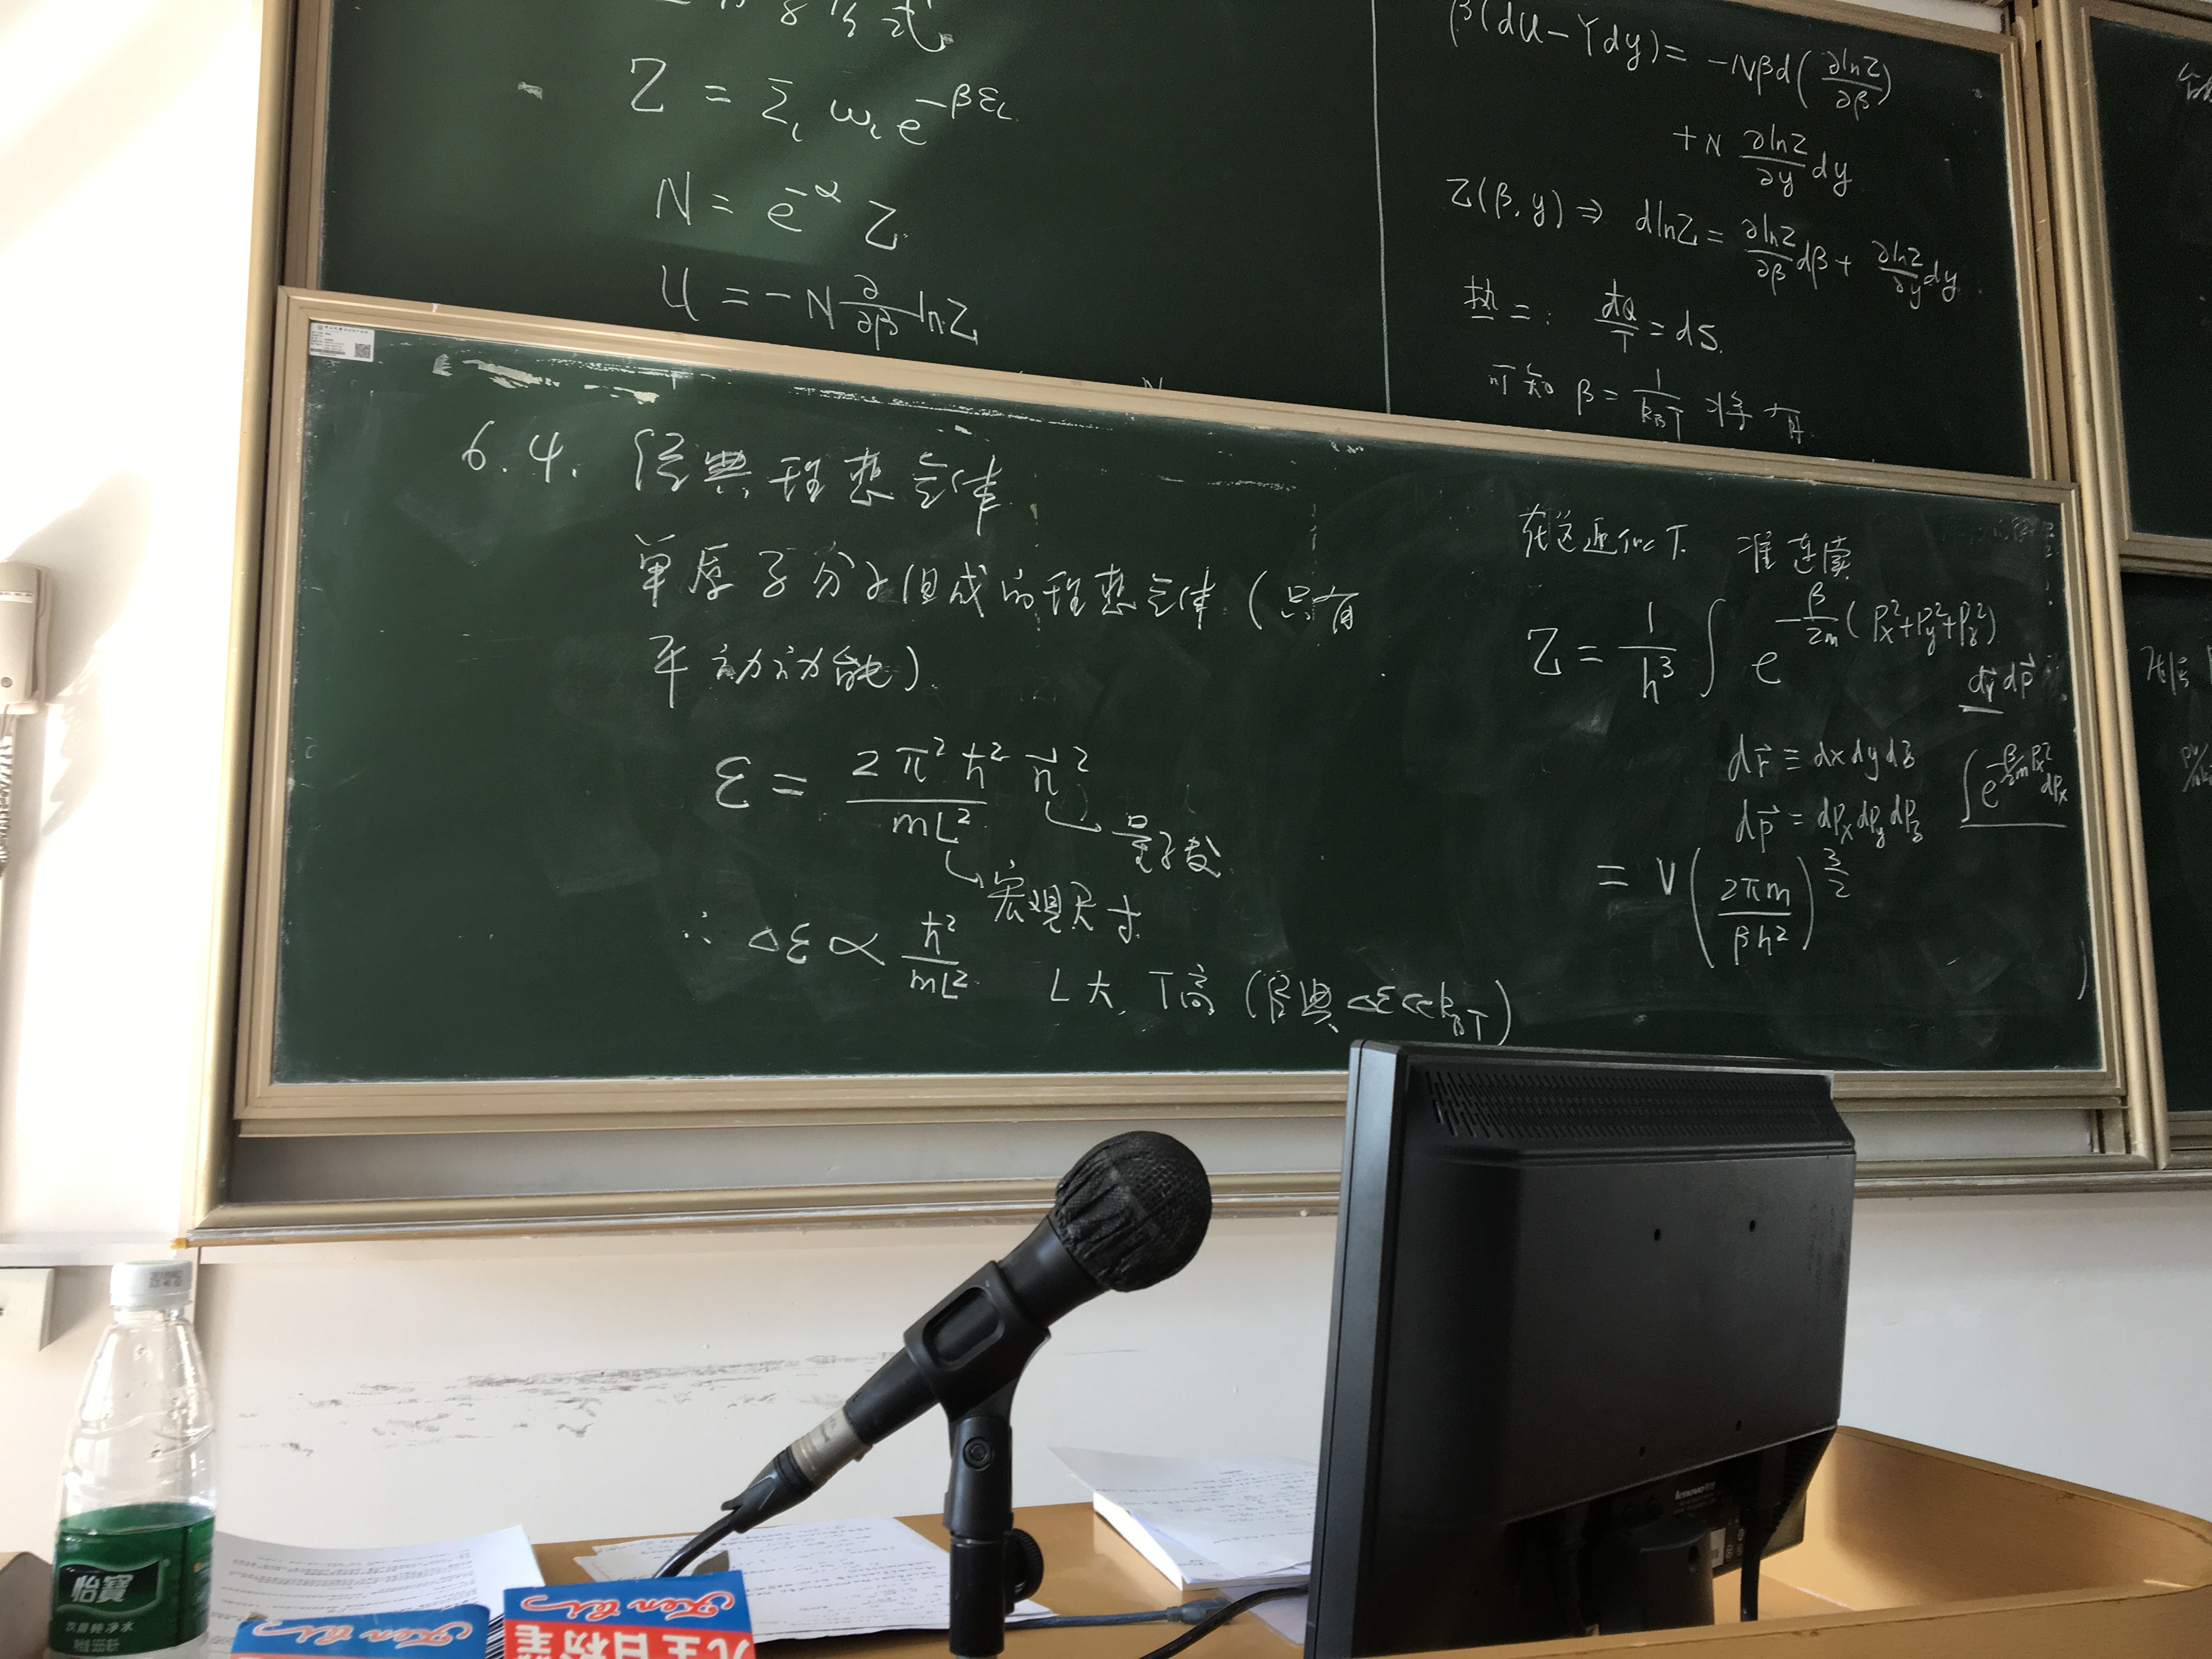 Z = Σ_l ω_l e^{-βε_l}
N = e^{-α} Z
U = -N ∂/∂β lnZ
β(dU - Ydy) = -Nβd(∂lnZ/∂β)
+ N ∂lnZ/∂y dy
Z(β, y) ⇒ dlnZ = ∂lnZ/∂β dβ + ∂lnZ/∂y dy
热二: đQ/T = dS.
可知 β = 1/k_BT 将有
6.4. 经典理想气体
单原子分子组成的理想气体 (只有
平动动能).
ε = 2π²ħ²/mL² n⃗²
量子数
宏观尺寸
∴ Δε ∝ ħ²/mL² L大, T高 (经典 Δε << k_BT)
在这近似下. 准连续
Z = 1/h³ ∫ e^{-β/2m (P_x²+P_y²+P_z²)} dr⃗ dp⃗
dr⃗ ≡ dx dy dz
dp⃗ = dP_x dP_y dP_z
∫ e^{-β/2m P_x²} dP_x
= V (2πm/βh²)^{3/2}
lenovo
怡寶
饮用纯净水